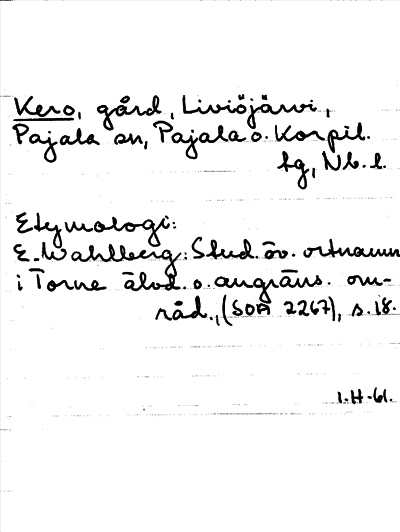 Kero, gård, Liviöjärvi,
Pajala sn, Pajala o. Korpil.
tg, Nb. l.
Etymologi:
E. Wahlberg: Stud. öv. ortnamn
i Torne älvd. o. angräns. om-
råd., (SOA 2267), s. 18.
1-H-61.